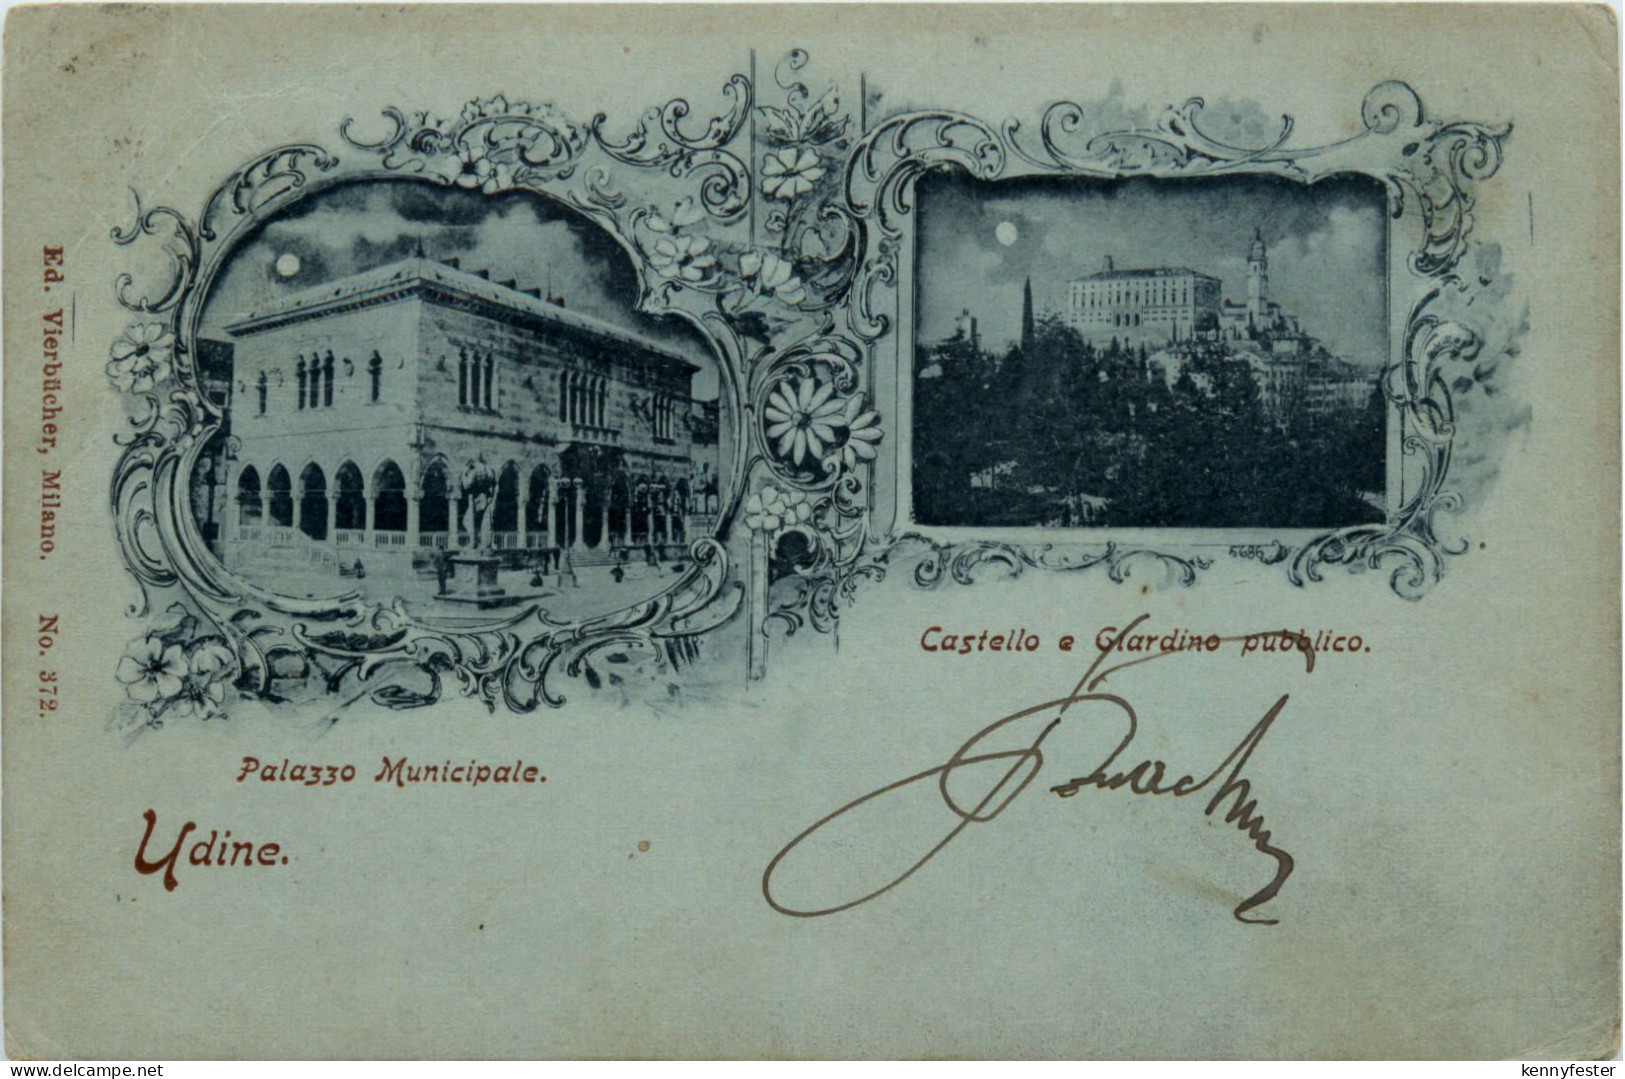 Ed. Vierbücher, Milano. No. 372.
5686
Castello e Giardino pubblico.
Palazzo Municipale.
Udine.
delcampe.net
kennyfester